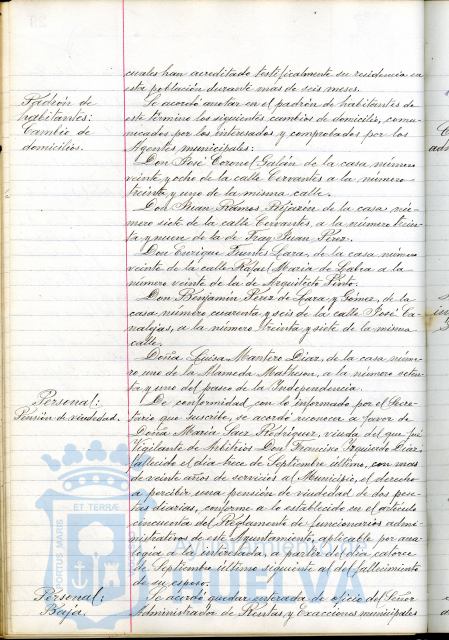 cuales han acreditado testificalmente su residencia en
esta población durante mas de seis meses.
Padrón de
habitantes:
Cambio de
domicilios.
Se acordó anotar en el padrón de habitantes de
este término los siguientes cambios de domicilio, comu-
nicados por los interesados y comprobados por los
Agentes municipales:
Don José Coronel Galán de la casa número
veinte y ocho de la calle Cervantes a la número
treinta y uno de la misma calle.
Don Juan Ramos Rejazón de la casa nú-
mero siete de la calle Cervantes, a la número trein-
ta y nueve de la de Fray Juan Pérez.
Don Enrique Fuentes Lara, de la casa número
veinte de la calle Rafael María de Labra a la
número veinte de la de Arquitecto Pinto.
Don Benjamin Pérez de Lara y Gómez, de la
casa número cuarenta y seis de la calle José Ca-
nalejas, a la número treinta y siete de la misma
calle.
Doña Luisa Mantero Diaz, de la casa núme-
ro uno de la Alameda Matheson, a la número ochen-
ta y uno del paseo de la Independencia.
Personal:
Pensión de viudedad.
De conformidad con lo informado por el Secre-
tario que suscribe, se acordó reconocer a favor de
Doña María Saez Rodríguez, viuda del que fué
Vigilante de Arbitrios Don Francisco Izquierdo Diaz,
fallecido el dia trece de Septiembre último, con mas
de veinte años de servicios al Municipio, el derecho
a percibir una pensión de viudedad de dos pese-
tas diarias, conforme a lo establecido en el artículo
cincuenta del Reglamento de funcionarios admi-
nistrativos de este Ayuntamiento, aplicable por ana-
logía a la interesada, a partir del dia catorce
de Septiembre último siguiente al del fallecimiento
de su esposo.
Personal:
Baja.
Se acordó quedar enterada de oficio del Señor
Administrador de Rentas y Exacciones municipales
PORTUS MARIS
ET TERRÆ
HUELVA